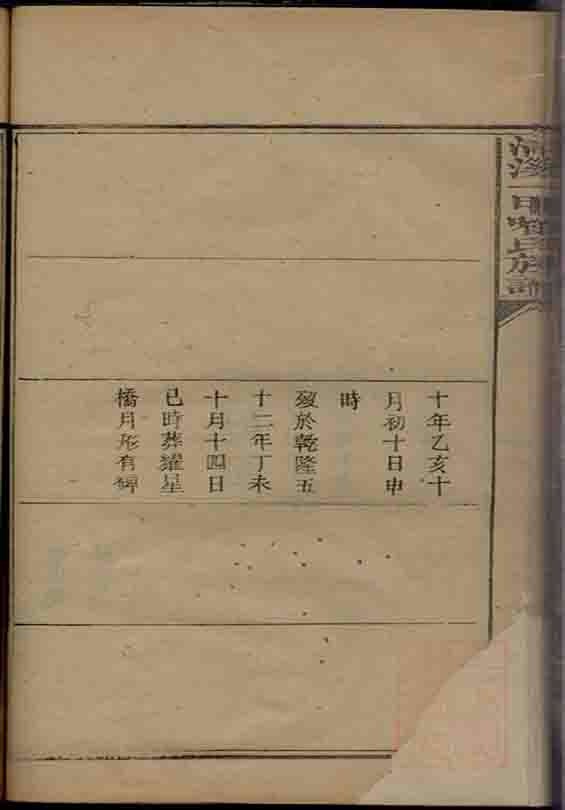 十年乙亥十
月初十日申
時
歿於乾隆五
十二年丁未
十月十四日
巳時葬耀星
橋月形有碑